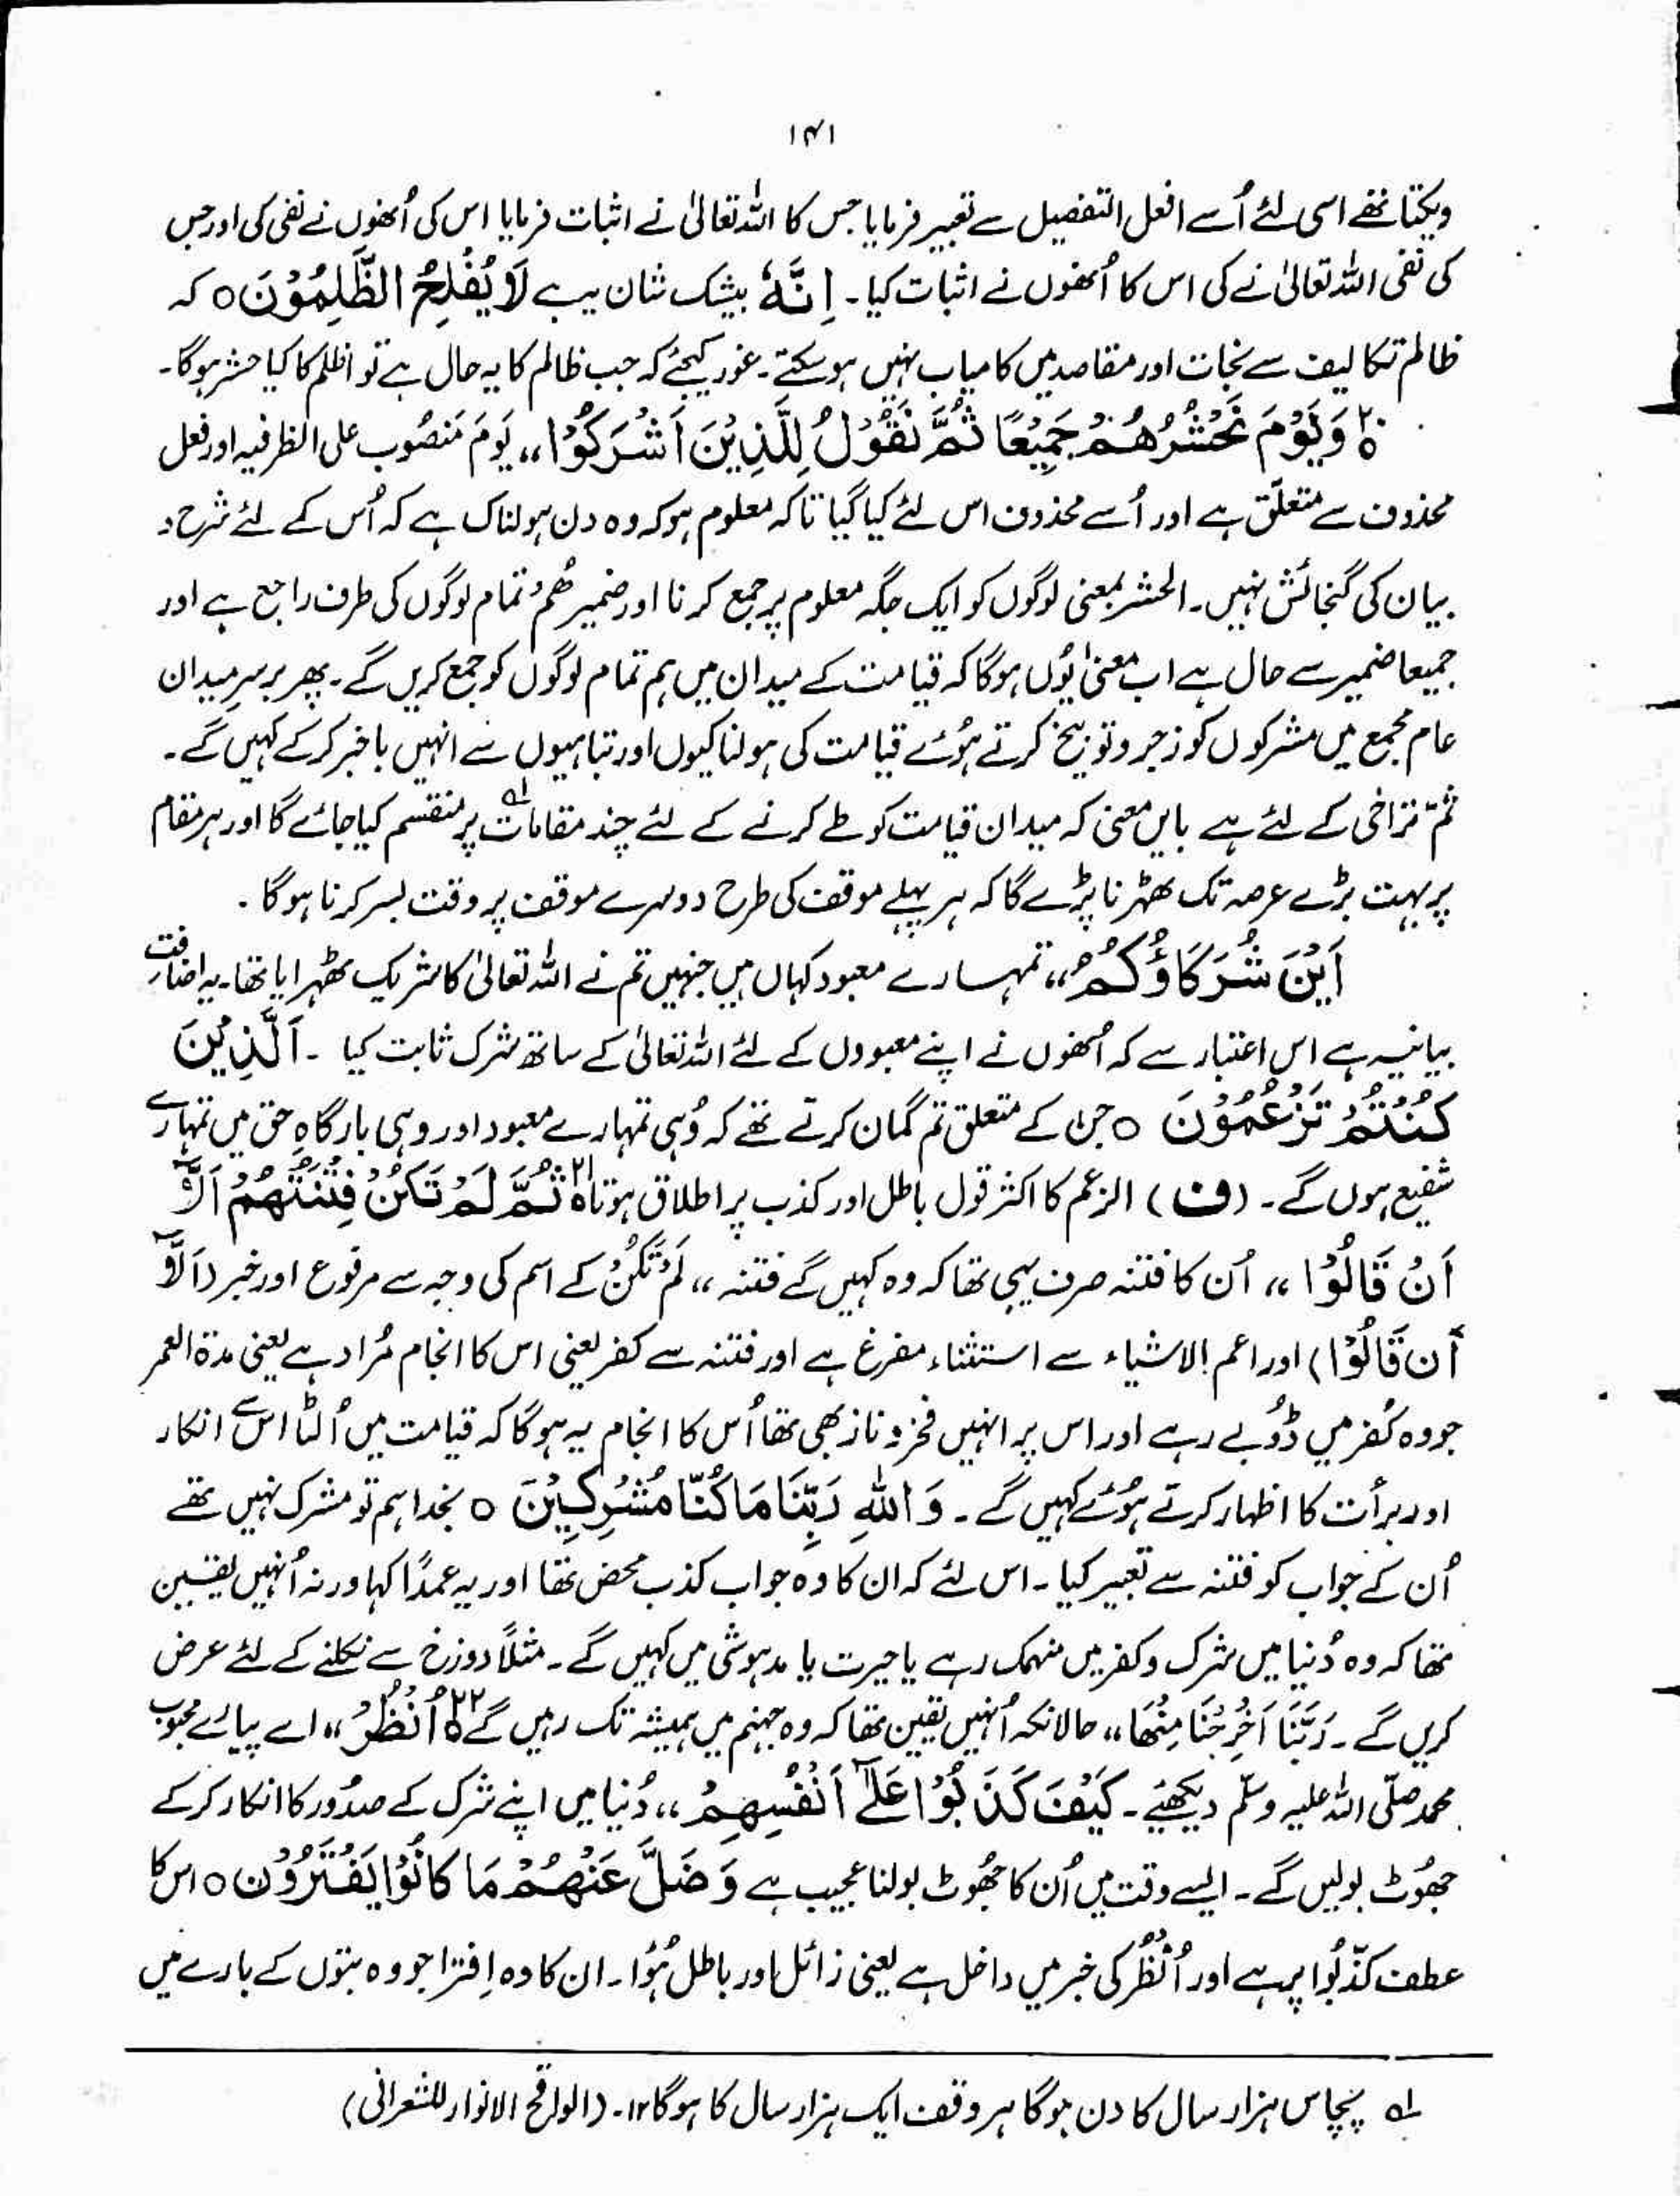 ۱۴۱
ویکتا تھے اسی لئے اُسے افعل التفضیل سے تعبیر فرمایا جس کا اللہ تعالیٰ نے اثبات فرمایا اس کی اُنھوں نے نفی کی اور جس
کی نفی اللہ تعالیٰ نے کی اس کا اُنھوں نے اثبات کیا۔ اِنَّهٗ بیشک شان یہ ہے لَا يُفْلِحُ الظّٰلِمُوْنَ ○ کہ
ظالم تکالیف سے نجات اور مقاصد میں کامیاب نہیں ہو سکتے۔ غور کیجئے کہ جب ظالم کا یہ حال ہے تو اظلم کا کیا حشر ہوگا۔
۲۰؎ وَيَوْمَ نَحْشُرُهُمْ جَمِيْعًا ثُمَّ نَقُوْلُ لِلَّذِيْنَ اَشْرَكُوْا،، یَومَ مَنصُوب علی الظرفیہ اور فعل
محذوف سے متعلّق ہے اور اُسے محذوف اس لئے کیا گیا تاکہ معلوم ہو کہ وہ دن ہولناک ہے کہ اُس کے لئے شرح و
بیان کی گنجائش نہیں۔ الحشر بمعنی لوگوں کو ایک جگہ معلوم پر جمع کرنا اور ضمیر ھُمْ تمام لوگوں کی طرف راجع ہے اور
جمیعا ضمیر سے حال ہے اب معنیٰ یُوں ہوگا کہ قیامت کے میدان میں ہم تمام لوگوں کو جمع کریں گے۔ پھر برسرِ میدان
عام مجمع میں مشرکوں کو زجر و توبیخ کرتے ہُوئے قیامت کی ہولناکیوں اور تباہیوں سے انہیں باخبر کرکے کہیں گے۔
ثُمّ تراخی کے لئے ہے بایں معنی کہ میدان قیامت کو طے کرنے کے لئے چند مقامات؎۱ پر منقسم کیا جائے گا اور ہر مقام
پر بہت بڑے عرصہ تک ٹھہرنا پڑے گا کہ ہر پہلے موقف کی طرح دوسرے موقف پر وقت بسر کرنا ہوگا۔
اَيْنَ شُرَكَاؤُكُمْ،، تمہارے معبود کہاں ہیں جنہیں تم نے اللہ تعالیٰ کا شریک ٹھہرایا تھا۔ یہ اضافت
بیانیہ ہے اس اعتبار سے کہ اُنھوں نے اپنے معبودوں کے لئے اللہ تعالیٰ کے ساتھ شرک ثابت کیا۔ اَلَّذِيْنَ
كُنْتُمْ تَزْعُمُوْنَ ○ جن کے متعلق تم گمان کرتے تھے کہ وُہی تمہارے معبود اور وہی بارگاہِ حق میں تمہارے
شفیع ہوں گے۔ (ف) الزعم کا اکثر قول باطل اور کذب پر اطلاق ہوتا ۲۱؎ ثُمَّ لَمْ تَكُنْ فِتْنَتُهُمْ اِلَّآ
اَنْ قَالُوْا،، اُن کا فتنہ صرف یہی تھا کہ وہ کہیں گے فتنہ،، لَمْ تَكُنْ کے اسم کی وجہ سے مرفوع اور خبر (اِلَّآ
اَن قَالُوْا) اور اعم الاشیاء سے استثناء مفرغ ہے اور فتنہ سے کفر یعنی اس کا انجام مُراد ہے یعنی مدۃ العمر
جو وہ کفر میں ڈُوبے رہے اور اس پر انہیں فخر و ناز بھی تھا اُس کا انجام یہ ہوگا کہ قیامت میں اُلٹا اس سے انکار
اور برأت کا اظہار کرتے ہُوئے کہیں گے۔ وَاللهِ رَبِّنَا مَا كُنَّا مُشْرِكِيْنَ ○ بخدا ہم تو مشرک نہیں تھے
اُن کے جواب کو فتنہ سے تعبیر کیا۔ اس لئے کہ ان کا وہ جواب کذب محض تھا اور یہ عمدًا کہا ورنہ اُنہیں یقین
تھا کہ وہ دُنیا میں شرک و کفر میں منہمک رہے یا حیرت یا مدہوشی میں کہیں گے۔ مثلاً دوزخ سے نکلنے کے لئے عرض
کریں گے۔ رَبَّنَا اَخْرِجْنَا مِنْهَا،، حالانکہ اُنہیں یقین تھا کہ وہ جہنم میں ہمیشہ تک رہیں گے ۲۲؎ اُنْظُرْ،، اے پیارے محبوب
محمد صلّی اللہ علیہ وسلّم دیکھئے۔ كَيْفَ كَذَبُوْا عَلٰٓى اَنْفُسِهِمْ،، دُنیا میں اپنے شرک کے صدُور کا انکار کرکے
جھُوٹ بولیں گے۔ ایسے وقت میں اُن کا جھُوٹ بولنا عجیب ہے وَضَلَّ عَنْهُمْ مَا كَانُوْا يَفْتَرُوْنَ ○ اس کا
عطف کَذَبُوا پر ہے اور اُنْظُر کی خبر میں داخل ہے یعنی زائل اور باطل ہُوا۔ ان کا وہ اِفترا جو وہ بتوں کے بارے میں
؎۱ پچاس ہزار سال کا دن ہوگا ہر وقف ایک ہزار سال کا ہوگا ۱۲۔ (الواقح الانوار للشعرانی)